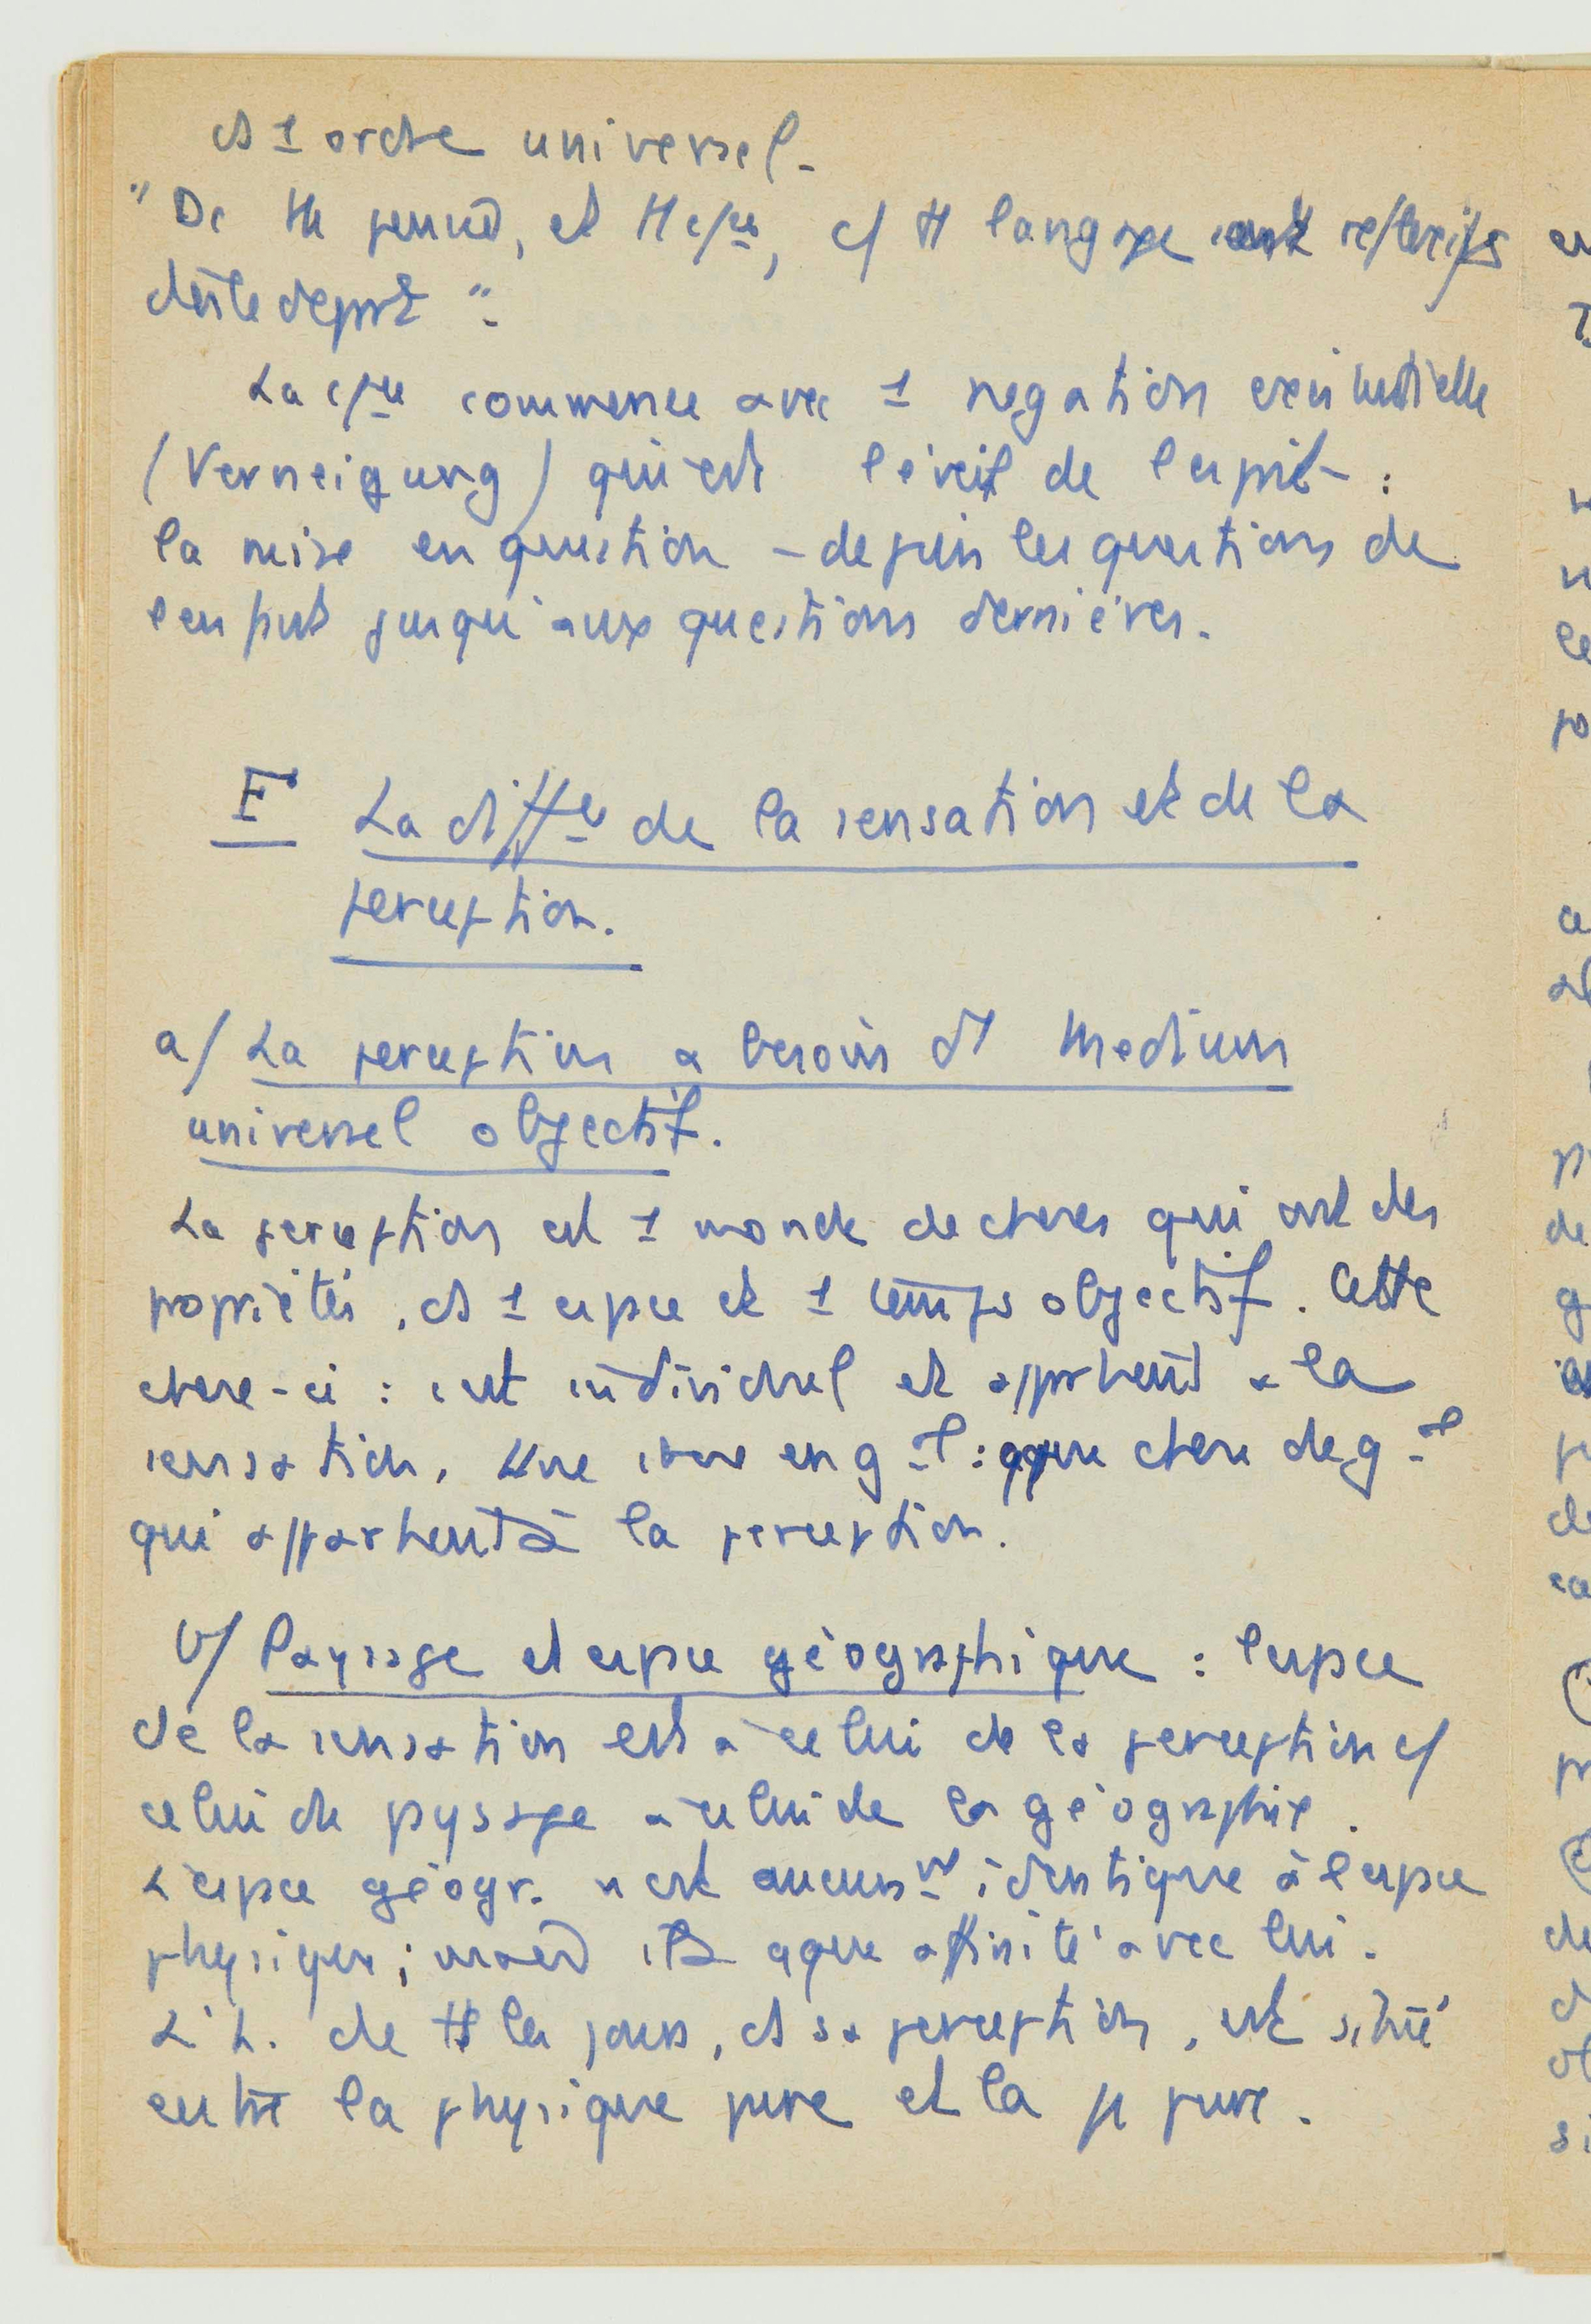 ds 1 ordre universel.
"De tte pensée, et tte csce, c/ tt langage, est réflexif
dès le départ".
La csce commence avec 1 négation existentielle
(Verneigung) qui est l'éveil de l'esprit :
la mise en question – depuis les questions de
l'enfant jusqu'aux questions dernières.
F La diffce de la sensation et de la
perception.
a/ La perception a besoin d'1 medium
universel objectif.
La perception est 1 monde de choses qui ont des
propriétés, ds 1 espace et 1 temps objectif. Cette
chose-ci : c'est individuel et appartient à la
sensation. Une chose en gal : qque chose de gal
qui appartient à la perception.
b/ Paysage et espace géographique : l'espace
de la sensation est à celui de la perception c/
celui du paysage à celui de la géographie.
L'espace géogr. n'est aucunt identique à l'espace
physique ; mais il a qque affinité avec lui.
L'h. de ts les jours, ds sa perception, est situé
entre la physique pure et la ψ pure.